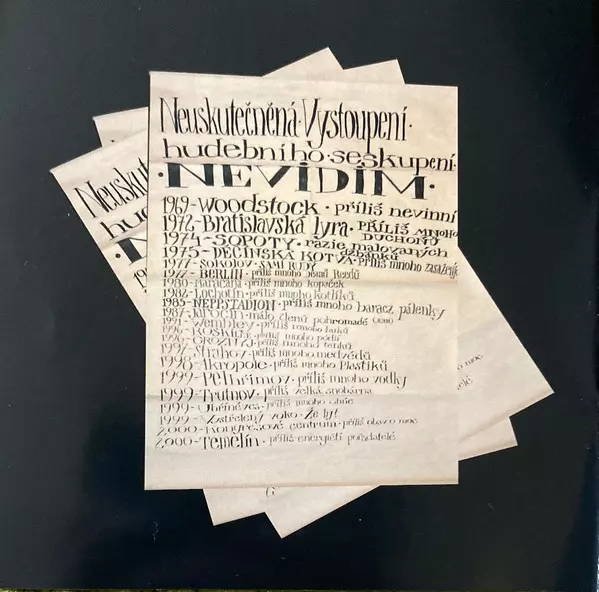 Neuskutečněná · Vystoupení ·
hudebního · seskupení ·
· NEVIDÍM ·
1969 - WOODSTOCK · příliš nevinní
1972 - Bratislavská lyra · příliš mnoho
duchoňů
1974 - SOPOTY · razie malovaných
džbánků
1975 - DĚČÍNSKÁ KOTVA · příliš mnoho
1977 - Sokolov · SAMÍ RUDÝ
1977 - BERLÍN · příliš mnoho Reedů
1980 - Maracaná · příliš mnoho kopaček
1982 - Lochotín · příliš mnoho kotlíků
1985 - NEPSTADION · příliš mnoho baracz pálenky
1987 - JAROCIN · málo členů pohromadě
1991 - Wembley · příliš mnoho
1996 - ROSKILDE · příliš mnoho pódií
1996 - příliš mnoho tanků
1997 - Strahov · příliš mnoho medvědů
1998 - Akropole · příliš mnoho Plastiků
1999 - Pelhřimov · příliš mnoho vodky
1999 - Trutnov · příliš velká snobárna
1999 - Uhříněves · příliš mnoho
1999 - Vystřelený voko · Že byl
2000 - Kongresové centrum · příliš obav o moc
2000 - Temelín · příliš energičtí pořadatelé
Neuskut
hud
· N
19
o moc
telé